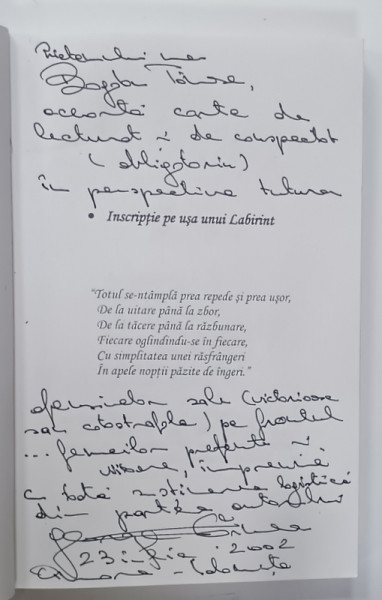 Prietenului meu
Bogdan
această carte de
lecturat și de conspectat
(obligatoriu)
în perspectiva tuturor
• Inscripție pe ușa unui Labirint
"Totul se-ntâmplă prea repede și prea ușor,
De la uitare până la zbor,
De la tăcere până la răzbunare,
Fiecare oglindindu-se în fiecare,
Cu simplitatea unei răsfrângeri
În apele nopții păzite de îngeri."
ofensivelor sale (victorioase
sau catastrofale) pe frontul
... femeilor preferate și
visare, împreună
cu toată susținerea logistică
din partea autorului
23 2002